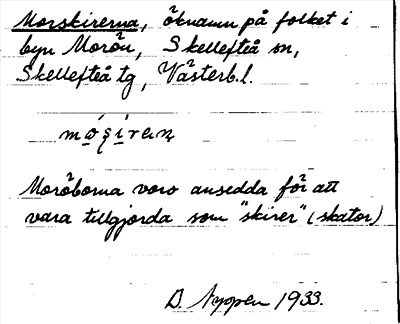 Morskirerna, öknamn på folket i
byn Morön, Skellefteå sn,
Skellefteå tg, Västerb.l.
Moröborna voro ansedda för att
vara tillgjorda som "skirer" (skator)
D. Nyppen 1933.